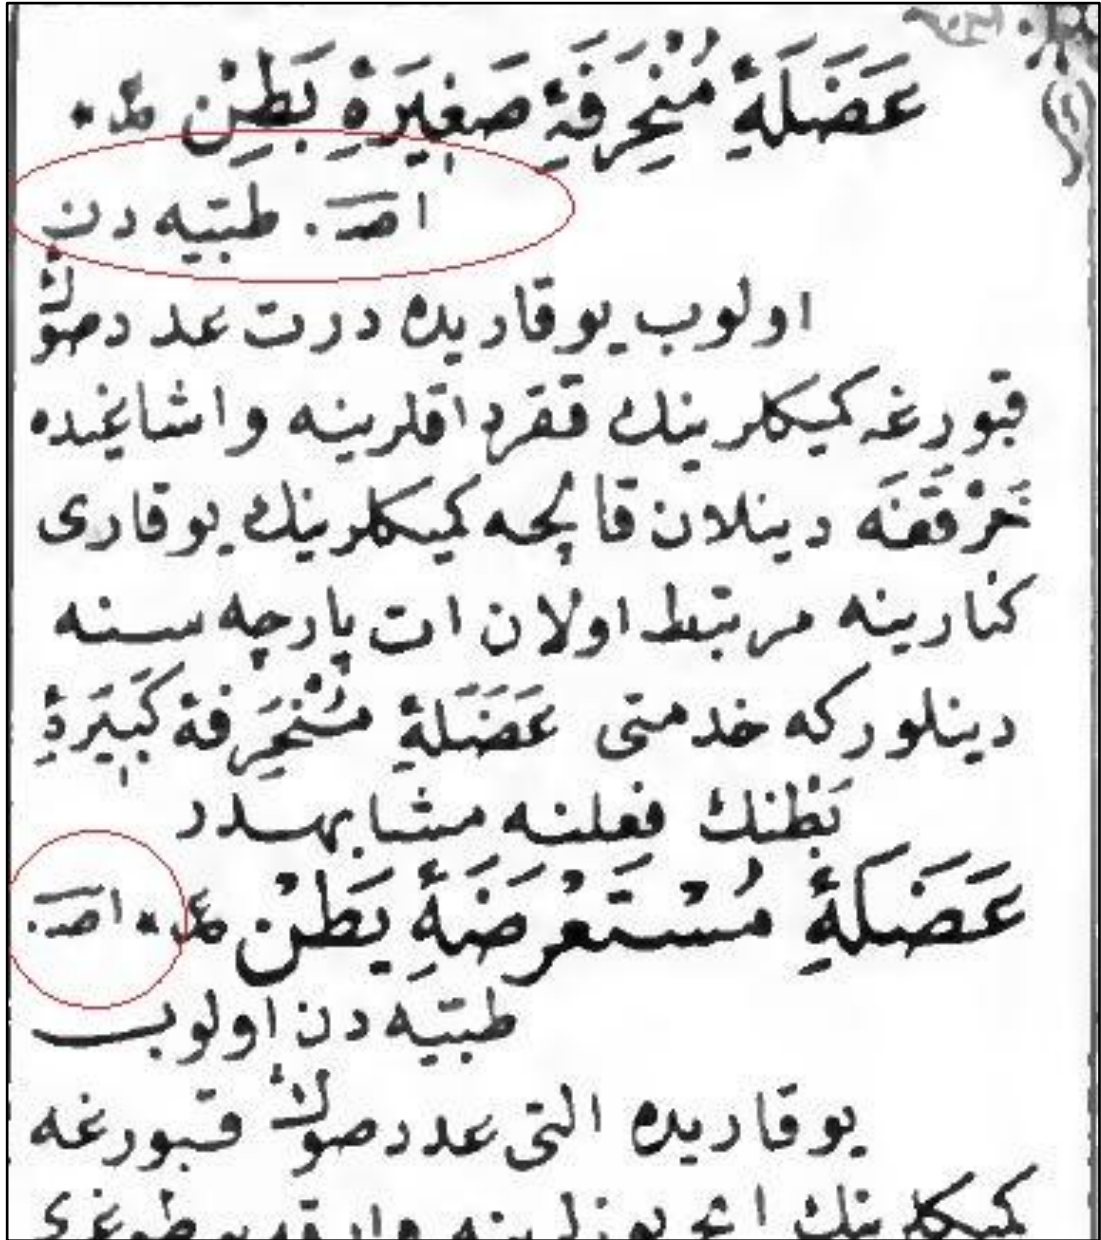 عَضَلَهٔ مُنْحَرِفَهٔ صَغِيرَهٔ بَطِنْ عد ٠
اصـ. طبّيه دن
اولوب يوقاريده درت عدد صوڭ
قبورغه كميكلرينك ققرداقلرينه واشاغيده
حَرْقَفَه دينلان قالچه كميكلرينك يوقارى
كنارينه مرتبط اولان ات پارچه سنه
دينلوركه خدمتى عَضَلَهٔ مُنْحَرِفهٔ كَبِيرَهٔ
بَطْنك فعلنه مشابهدر
عَضَلَهٔ مُسْتَعْرِضَهٔ بَطِنْ عد ٠ اصـ.
طبّيه دن اولوب
يوقاريده التى عدد صوڭ قبورغه
كميكلرينك ايچ يوزلرينه